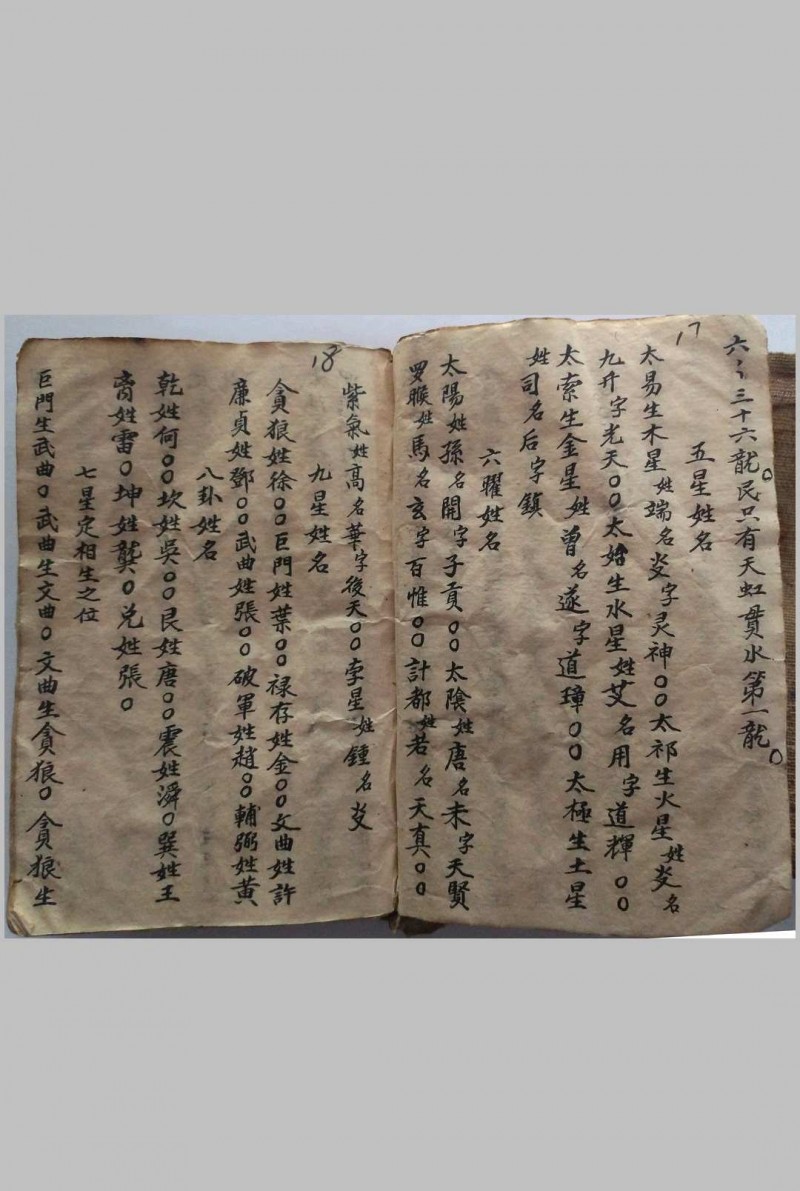 17
六〻三十六龍民只有天虹貫水第一龍〇
五星姓名
太易生木星姓端名炎字灵神〇〇太祁生火星姓炎名
九升字光天〇〇太始生水星姓艾名用字道輝〇〇
太索生金星姓曾名遂字道璋〇〇太極生土星
姓司名后字鎮
六曜姓名
太陽姓孫名開字子貢〇〇太陰姓唐名未字天賢
罗睺姓馬名玄字百惟〇〇計都姓若名天真〇〇
18
紫氣姓高名華字後天〇〇孛星姓鍾名炎
九星姓名
貪狼姓徐〇〇巨門姓葉〇〇禄存姓金〇〇文曲姓許
廉貞姓鄧〇〇武曲姓張〇〇破軍姓趙〇〇輔弼姓黄
八卦姓名
乾姓何〇〇坎姓吳〇〇艮姓唐〇〇震姓〇巽姓王
离姓雷〇坤姓龔〇兑姓張〇
七星定相生之位
巨門生武曲〇武曲生文曲〇文曲生貪狼〇貪狼生